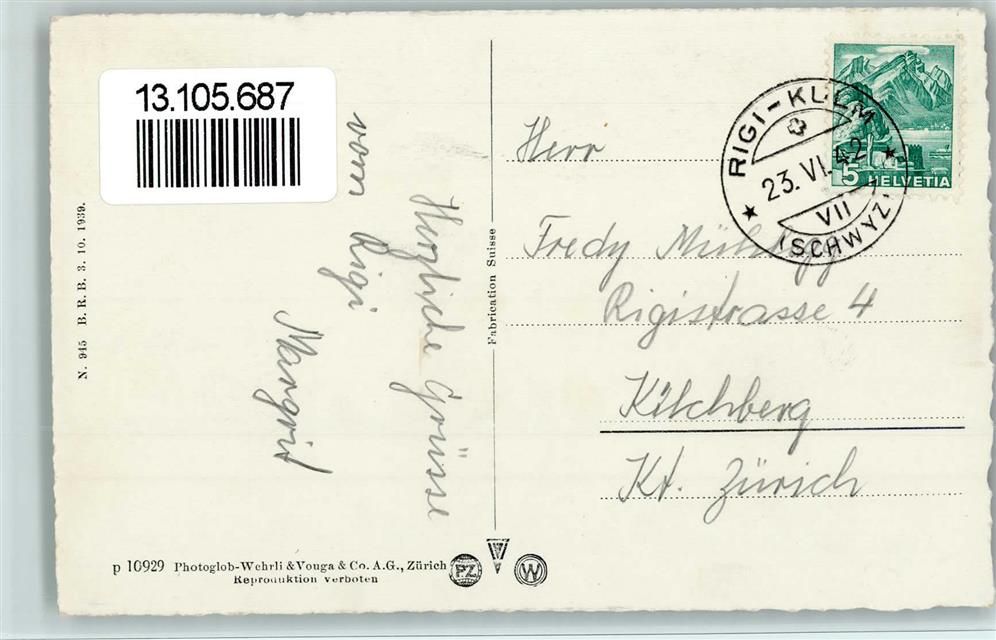 13.105.687
Herzliche Grüsse
vom Rigi
Margrit
N. 945 B. R. B. 3. 10. 1939.
Fabrication Suisse
RIGI-KULM
23. VI. 42
VII
(SCHWYZ)
5 HELVETIA
Herr
Fredy
Rigistrasse 4
Kilchberg
Kt. Zürich
p 10929 Photoglob-Wehrli & Vouga & Co. A.G., Zürich
Reproduktion verboten
PZ
W